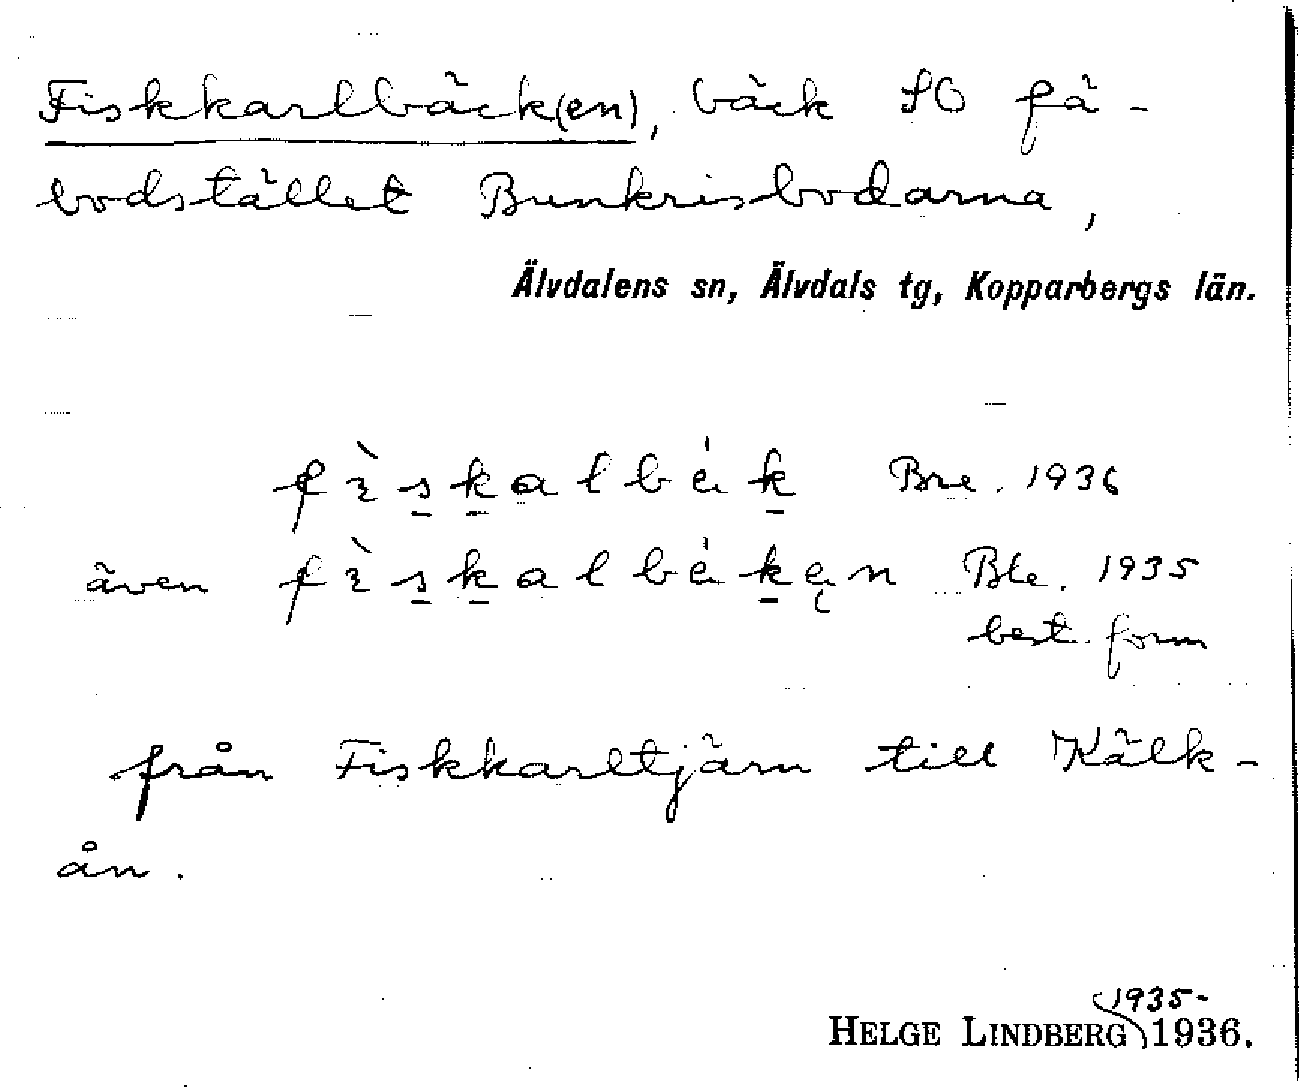 Fiskkarlbäck(en), bäck SO fä-
bodstället Bunkrisbodarna,
Älvdalens sn, Älvdals tg, Kopparbergs län.
fìskalbék Bre. 1936
även fìskalbékęn Ble. 1935
best. form
från Fiskkarltjärn till Kälk-
ån.
1935-
HELGE LINDBERG 1936.